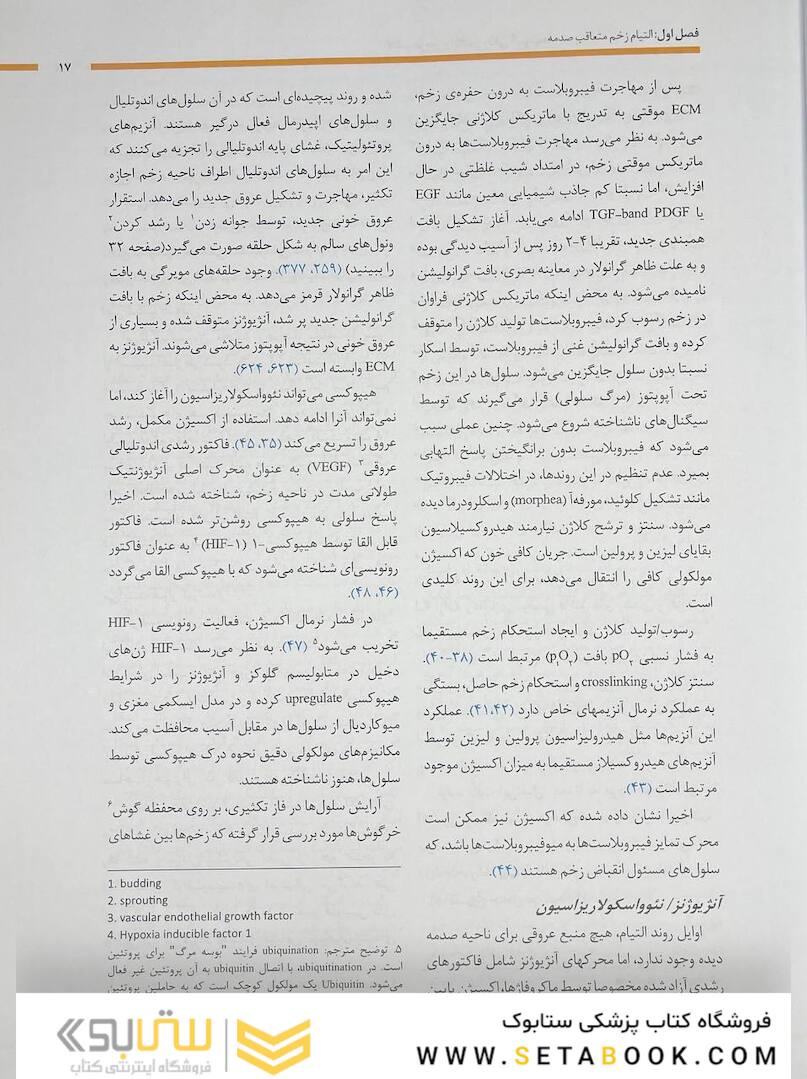 فصل اول: التیام زخم متعاقب صدمه
۱۷
پس از مهاجرت فیبروبلاست به درون حفره‌ی زخم،
ECM موقتی به تدریج با ماتریکس کلاژنی جایگزین
می‌شود. به نظر می‌رسد مهاجرت فیبروبلاست‌ها به درون
ماتریکس موقتی زخم، در امتداد شیب غلظتی در حال
افزایش، اما نسبتا کم جاذب شیمیایی معین مانند EGF
یا TGF-band PDGF ادامه می‌یابد. آغاز تشکیل بافت
همبندی جدید، تقریبا ۴-۲ روز پس از آسیب دیدگی بوده
و به علت ظاهر گرانولار در معاینه بصری، بافت گرانولیشن
نامیده می‌شود. به محض اینکه ماتریکس کلاژنی فراوان
در زخم رسوب کرد، فیبروبلاست‌ها تولید کلاژن را متوقف
کرده و بافت گرانولیشن غنی از فیبروبلاست، توسط اسکار
نسبتا بدون سلول جایگزین می‌شود. سلول‌ها در این زخم
تحت آپوپتوز (مرگ سلولی) قرار می‌گیرند که توسط
سیگنال‌های ناشناخته شروع می‌شود. چنین عملی سبب
می‌شود که فیبروبلاست بدون برانگیختن پاسخ التهابی
بمیرد. عدم تنظیم در این روندها، در اختلالات فیبروتیک
مانند تشکیل کلوئید، مورفه‌آ (morphea) و اسکلرودرما دیده
می‌شود. سنتز و ترشح کلاژن نیازمند هیدروکسیلاسیون
بقایای لیزین و پرولین است. جریان کافی خون که اکسیژن
مولکولی کافی را انتقال می‌دهد، برای این روند کلیدی
است.
رسوب/تولید کلاژن و ایجاد استحکام زخم مستقیما
به فشار نسبی pO₂ بافت (p₁O₂) مرتبط است (۳۸-۴۰).
سنتز کلاژن، crosslinking و استحکام زخم حاصل، بستگی
به عملکرد نرمال آنزیمهای خاص دارد (۴۱،۴۲). عملکرد
این آنزیم‌ها مثل هیدرولیزاسیون پرولین و لیزین توسط
آنزیم‌های هیدروکسیلاز مستقیما به میزان اکسیژن موجود
مرتبط است (۴۳).
اخیرا نشان داده شده که اکسیژن نیز ممکن است
محرک تمایز فیبروبلاست‌ها به میوفیبروبلاست‌ها باشد، که
سلول‌های مسئول انقباض زخم هستند (۴۴).
آنژیوژنز/ نئوواسکولاریزاسیون
اوایل روند التیام، هیچ منبع عروقی برای ناحیه صدمه
دیده وجود ندارد، اما محرکهای آنژیوژنز شامل فاکتورهای
رشدی آزاد شده مخصوصا توسط ماکروفاژها، اکسیژن پایین
شده و روند پیچیده‌ای است که در آن سلول‌های اندوتلیال
و سلول‌های اپیدرمال فعال درگیر هستند. آنزیم‌های
پروتئولیتیک، غشای پایه اندوتلیالی را تجزیه می‌کنند که
این امر به سلول‌های اندوتلیال اطراف ناحیه زخم اجازه
تکثیر، مهاجرت و تشکیل عروق جدید را می‌دهد. استقرار
عروق خونی جدید، توسط جوانه زدن¹ یا رشد کردن²
ونول‌های سالم به شکل حلقه صورت می‌گیرد(صفحه ۳۲
را ببینید) (۲۵۹، ۳۷۷). وجود حلقه‌های مویرگی به بافت
ظاهر گرانولار قرمز می‌دهد. به محض اینکه زخم با بافت
گرانولیشن جدید پر شد، آنژیوژنز متوقف شده و بسیاری از
عروق خونی در نتیجه آپوپتوز متلاشی می‌شوند. آنژیوژنز به
ECM وابسته است (۶۲۳، ۶۲۴).
هیپوکسی می‌تواند نئوواسکولاریزاسیون را آغاز کند، اما
نمی‌تواند آنرا ادامه دهد. استفاده از اکسیژن مکمل، رشد
عروق را تسریع می‌کند (۳۵، ۴۵). فاکتور رشدی اندوتلیالی
عروقی³ (VEGF) به عنوان محرک اصلی آنژیوژنتیک
طولانی مدت در ناحیه زخم، شناخته شده است. اخیرا
پاسخ سلولی به هیپوکسی روشن‌تر شده است. فاکتور
قابل القا توسط هیپوکسی-۱ (HIF-۱) ⁴ به عنوان فاکتور
رونویسی‌ای شناخته می‌شود که با هیپوکسی القا می‌گردد
(۴۶، ۴۸).
در فشار نرمال اکسیژن، فعالیت رونویسی HIF-۱
تخریب می‌شود⁵ (۴۷). به نظر می‌رسد HIF-۱ ژن‌های
دخیل در متابولیسم گلوکز و آنژیوژنز را در شرایط
هیپوکسی upregulate کرده و در مدل ایسکمی مغزی و
میوکاردیال از سلول‌ها در مقابل آسیب محافظت می‌کند.
مکانیزم‌های مولکولی دقیق نحوه درک هیپوکسی توسط
سلول‌ها، هنوز ناشناخته هستند.
آرایش سلول‌ها در فاز تکثیری، بر روی محفظه گوش⁶
خرگوش‌ها مورد بررسی قرار گرفته که زخم‌ها بین غشاهای
1. budding
2. sprouting
3. vascular endothelial growth factor
4. Hypoxia inducible factor 1
۵. توضیح مترجم: ubiquination فرایند "بوسه مرگ" برای پروتئین
است. در ubiquitination، با اتصال ubiquitin به آن پروتئین غیر فعال
می‌شود. Ubiquitin یک مولکول کوچک است که به حاملین پروتئین
ستابوک
فروشگاه اینترنتی کتاب
فروشگاه کتاب پزشکی ستابوک
WWW.SETABOOK.COM